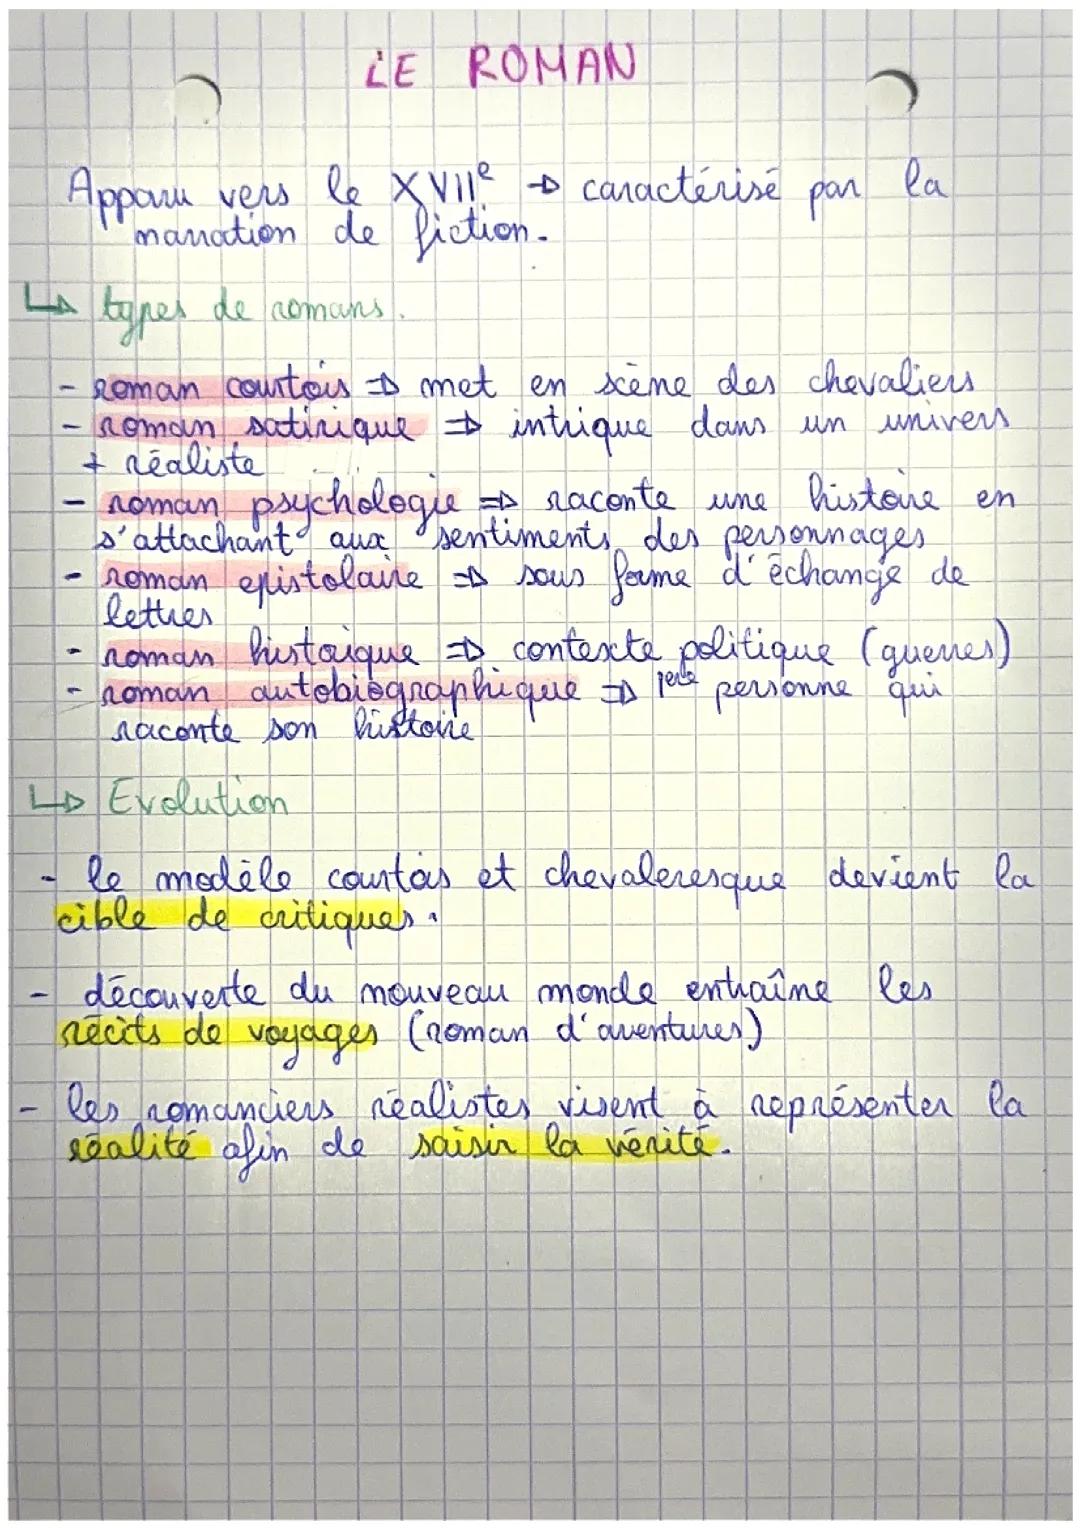 LE ROMAN
Apparu vers le XVIIe → caractérisé par la
narration de fiction.
↳ types de romans.
- roman courtois ⇒ met en scène des chevaliers
- roman satirique ⇒ intrique dans un univers
+ réaliste
- roman psychologie ⇒ raconte une histoire en
s'attachant aux sentiments des personnages
- roman epistolaire ⇒ sous forme d'échange de
lettres
- roman historique ⇒ contexte politique (guerres)
- roman autobiographique ⇒ 1ere personne qui
raconte son histoire
↳ Evolution
- le modèle courtois et chevaleresque devient la
cible de critiques.
- découverte du nouveau monde entraîne les
récits de voyages (roman d'aventures)
- les romanciers réalistes visent à représenter la
réalité afin de saisir la vérité.